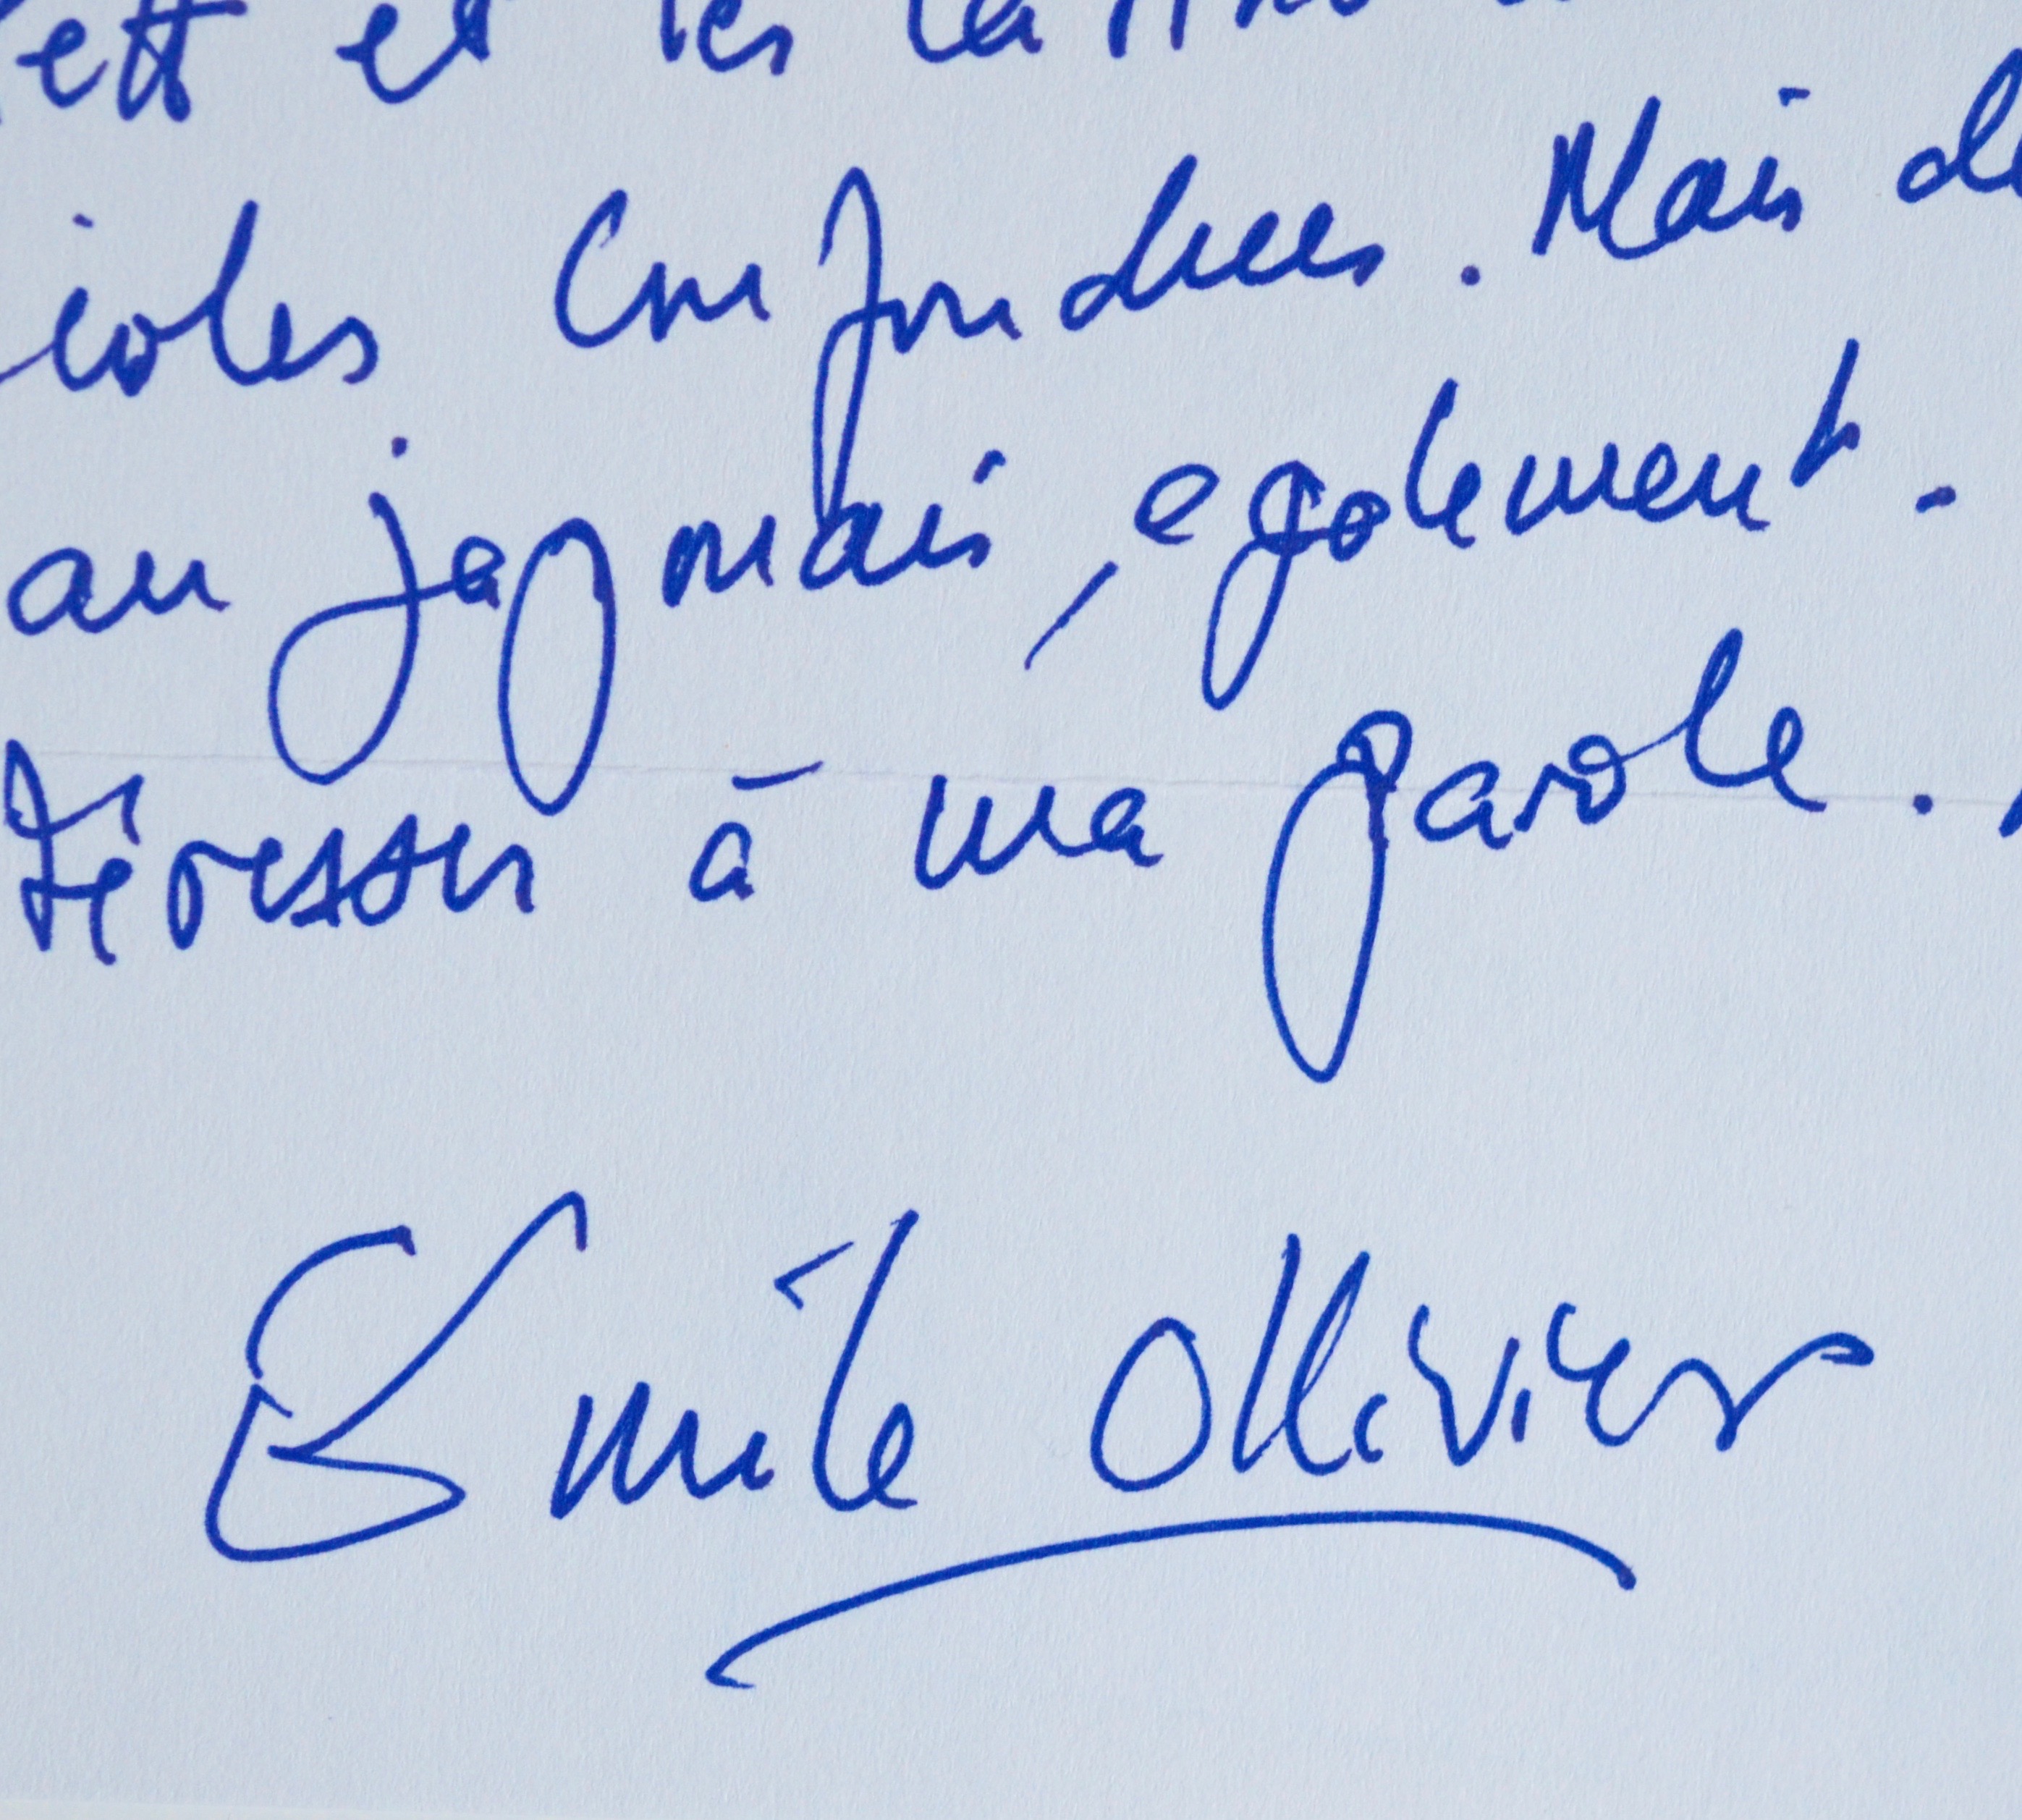 ett et les latino
icoles confondues. Mais de
au japonais, également.
téresser à ma parole.
Émile Ollivier